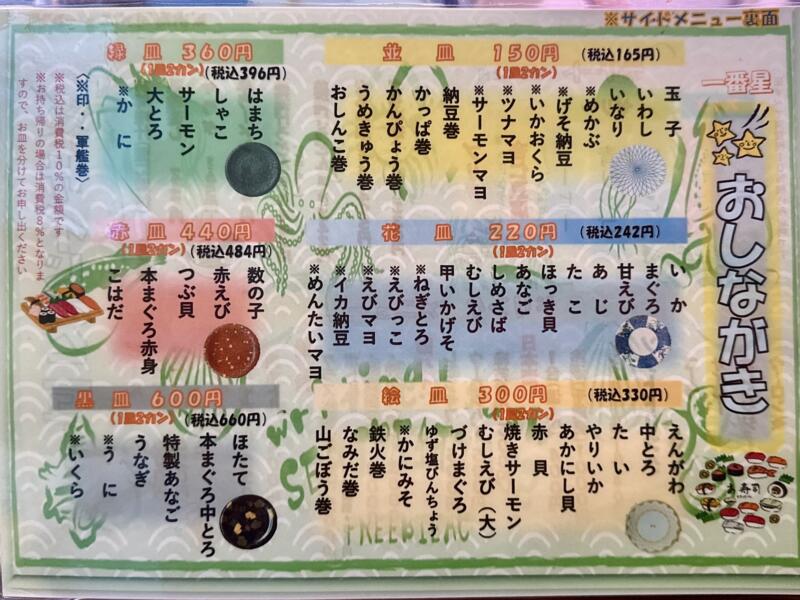 ※サイドメニュー裏面
一番星
おしながき
並皿 150円 (税込165円)
(1皿2カン)
玉子
いわし
いなり
※めかぶ
※げそ納豆
※いかおくら
※ツナマヨ
※サーモンマヨ
納豆巻
かっぱ巻
かんぴょう巻
うめきゅう巻
おしんこ巻
緑皿 360円 (税込396円)
(1皿2カン)
はまち
しゃこ
サーモン
大とろ
※かに
〈※印・・軍艦巻〉
※税込は消費税10%の金額です
※お持ち帰りの場合は消費税8%となりま
すので、お皿を分けてお申し出ください
花皿 220円 (税込242円)
(1皿2カン)
いか
まぐろ
甘えび
あじ
たこ
ほっき貝
あなご
しめさば
むしえび
甲いかげそ
※ねぎとろ
※えびっこ
※えびマヨ
※イカ納豆
※めんたいマヨ
赤皿 440円 (税込484円)
(1皿2カン)
数の子
赤えび
つぶ貝
本まぐろ赤身
こはだ
絵皿 300円 (税込330円)
(1皿2カン)
えんがわ
中とろ
たい
やりいか
あかにし貝
赤貝
焼きサーモン
むしえび(大)
づけまぐろ
ゆず塩びんちょう
※かにみそ
鉄火巻
なみだ巻
山ごぼう巻
黒皿 600円 (税込660円)
(1皿2カン)
ほたて
本まぐろ中とろ
特製あなご
うなぎ
※うに
※いくら